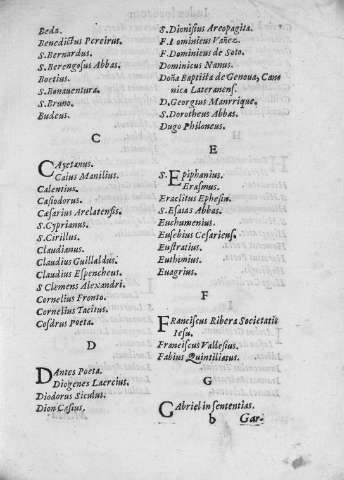 Beda.
Benedictus Pereirus.
S. Bernardus.
S. Berengosus Abbas.
Boetius.
S. Bonauentura.
S. Bruno.
Budeus.
C
CAyetanus.
Caius Manilius.
Calentius.
Casiodorus.
Cæsarius Arelatensis.
S. Cyprianus.
S. Cirillus.
Claudianus.
Claudius Guillaldus.
Claudius Espencheus.
S Clemens Alexandri.
Cornelius Fronto.
Cornelius Tacitus.
Cosdrus Poeta.
D
DAntes Poeta.
Diogenes Laercius.
Diodorus Siculus.
Dion Casius.
S. Dionisius Areopagita.
F. Dominicus Vañez.
F. Dominicus de Soto.
Dominicus Nanus.
Doña Baptista de Genoua, Cano
nica Lateranens.
D. Georgius Manrrique.
S. Dorotheus Abbas.
Dugo Philoneus.
E
S. EPiphanius.
Erasmus.
Eraclitus Ephesin.
S. Esaias Abbas.
Euchumenius.
Eusebius Cesariens.
Eustratius.
Euthomius.
Euagrius.
F
FRanciscus Ribera Societatis
Iesu.
Franciscus Vallesius.
Fabius Quintiliatus.
G
GAbriel in sententias.
b Gar-